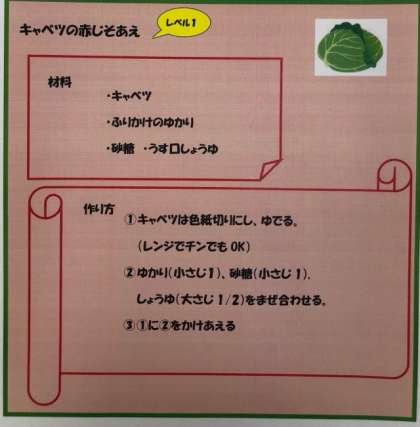 キャベツの赤じそあえ
レベル1
材料
・キャベツ
・ふりかけのゆかり
・砂糖 ・うす口しょうゆ
作り方
①キャベツは色紙切りにし、ゆでる。
(レンジでチンでもOK)
②ゆかり(小さじ1)、砂糖(小さじ1).
しょうゆ(大さじ1/2)をまぜ合わせる。
③①に②をかけあえる